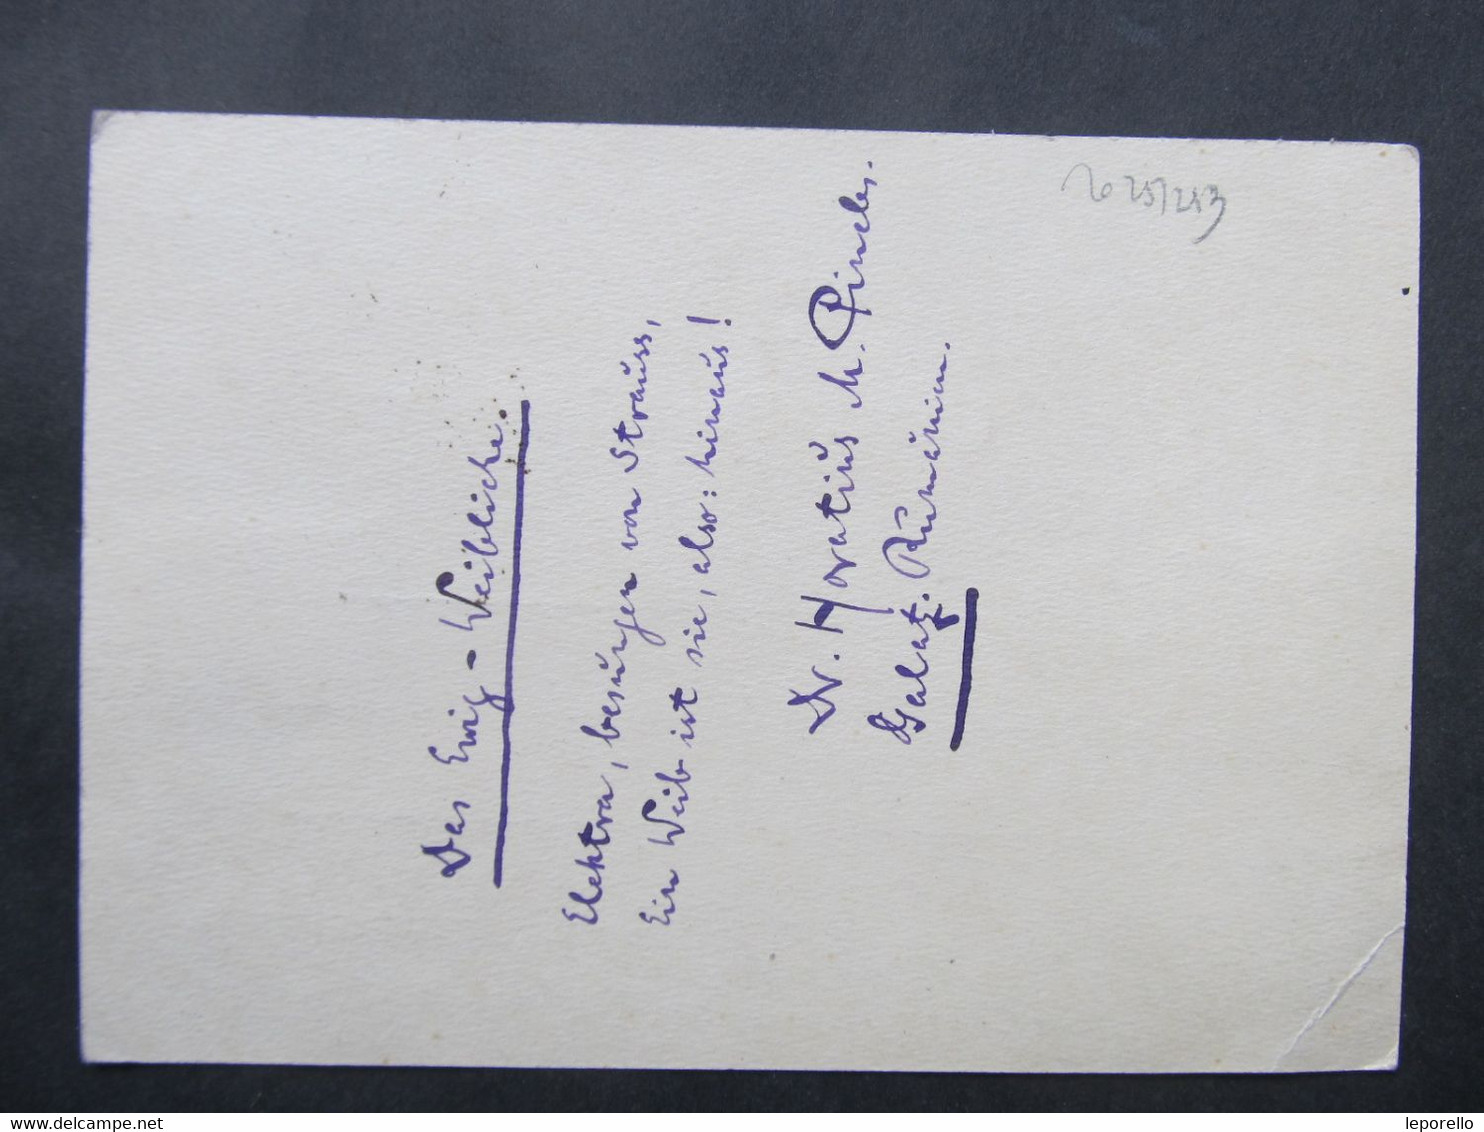 Das Ewig-Weibliche.
Elektra, besungen von Strauss,
Ein Weib ist sie, also: hinaus!
Dr. Horatius M. Pineles.
Galatz. Rumänien.
delcampe.net
leporello